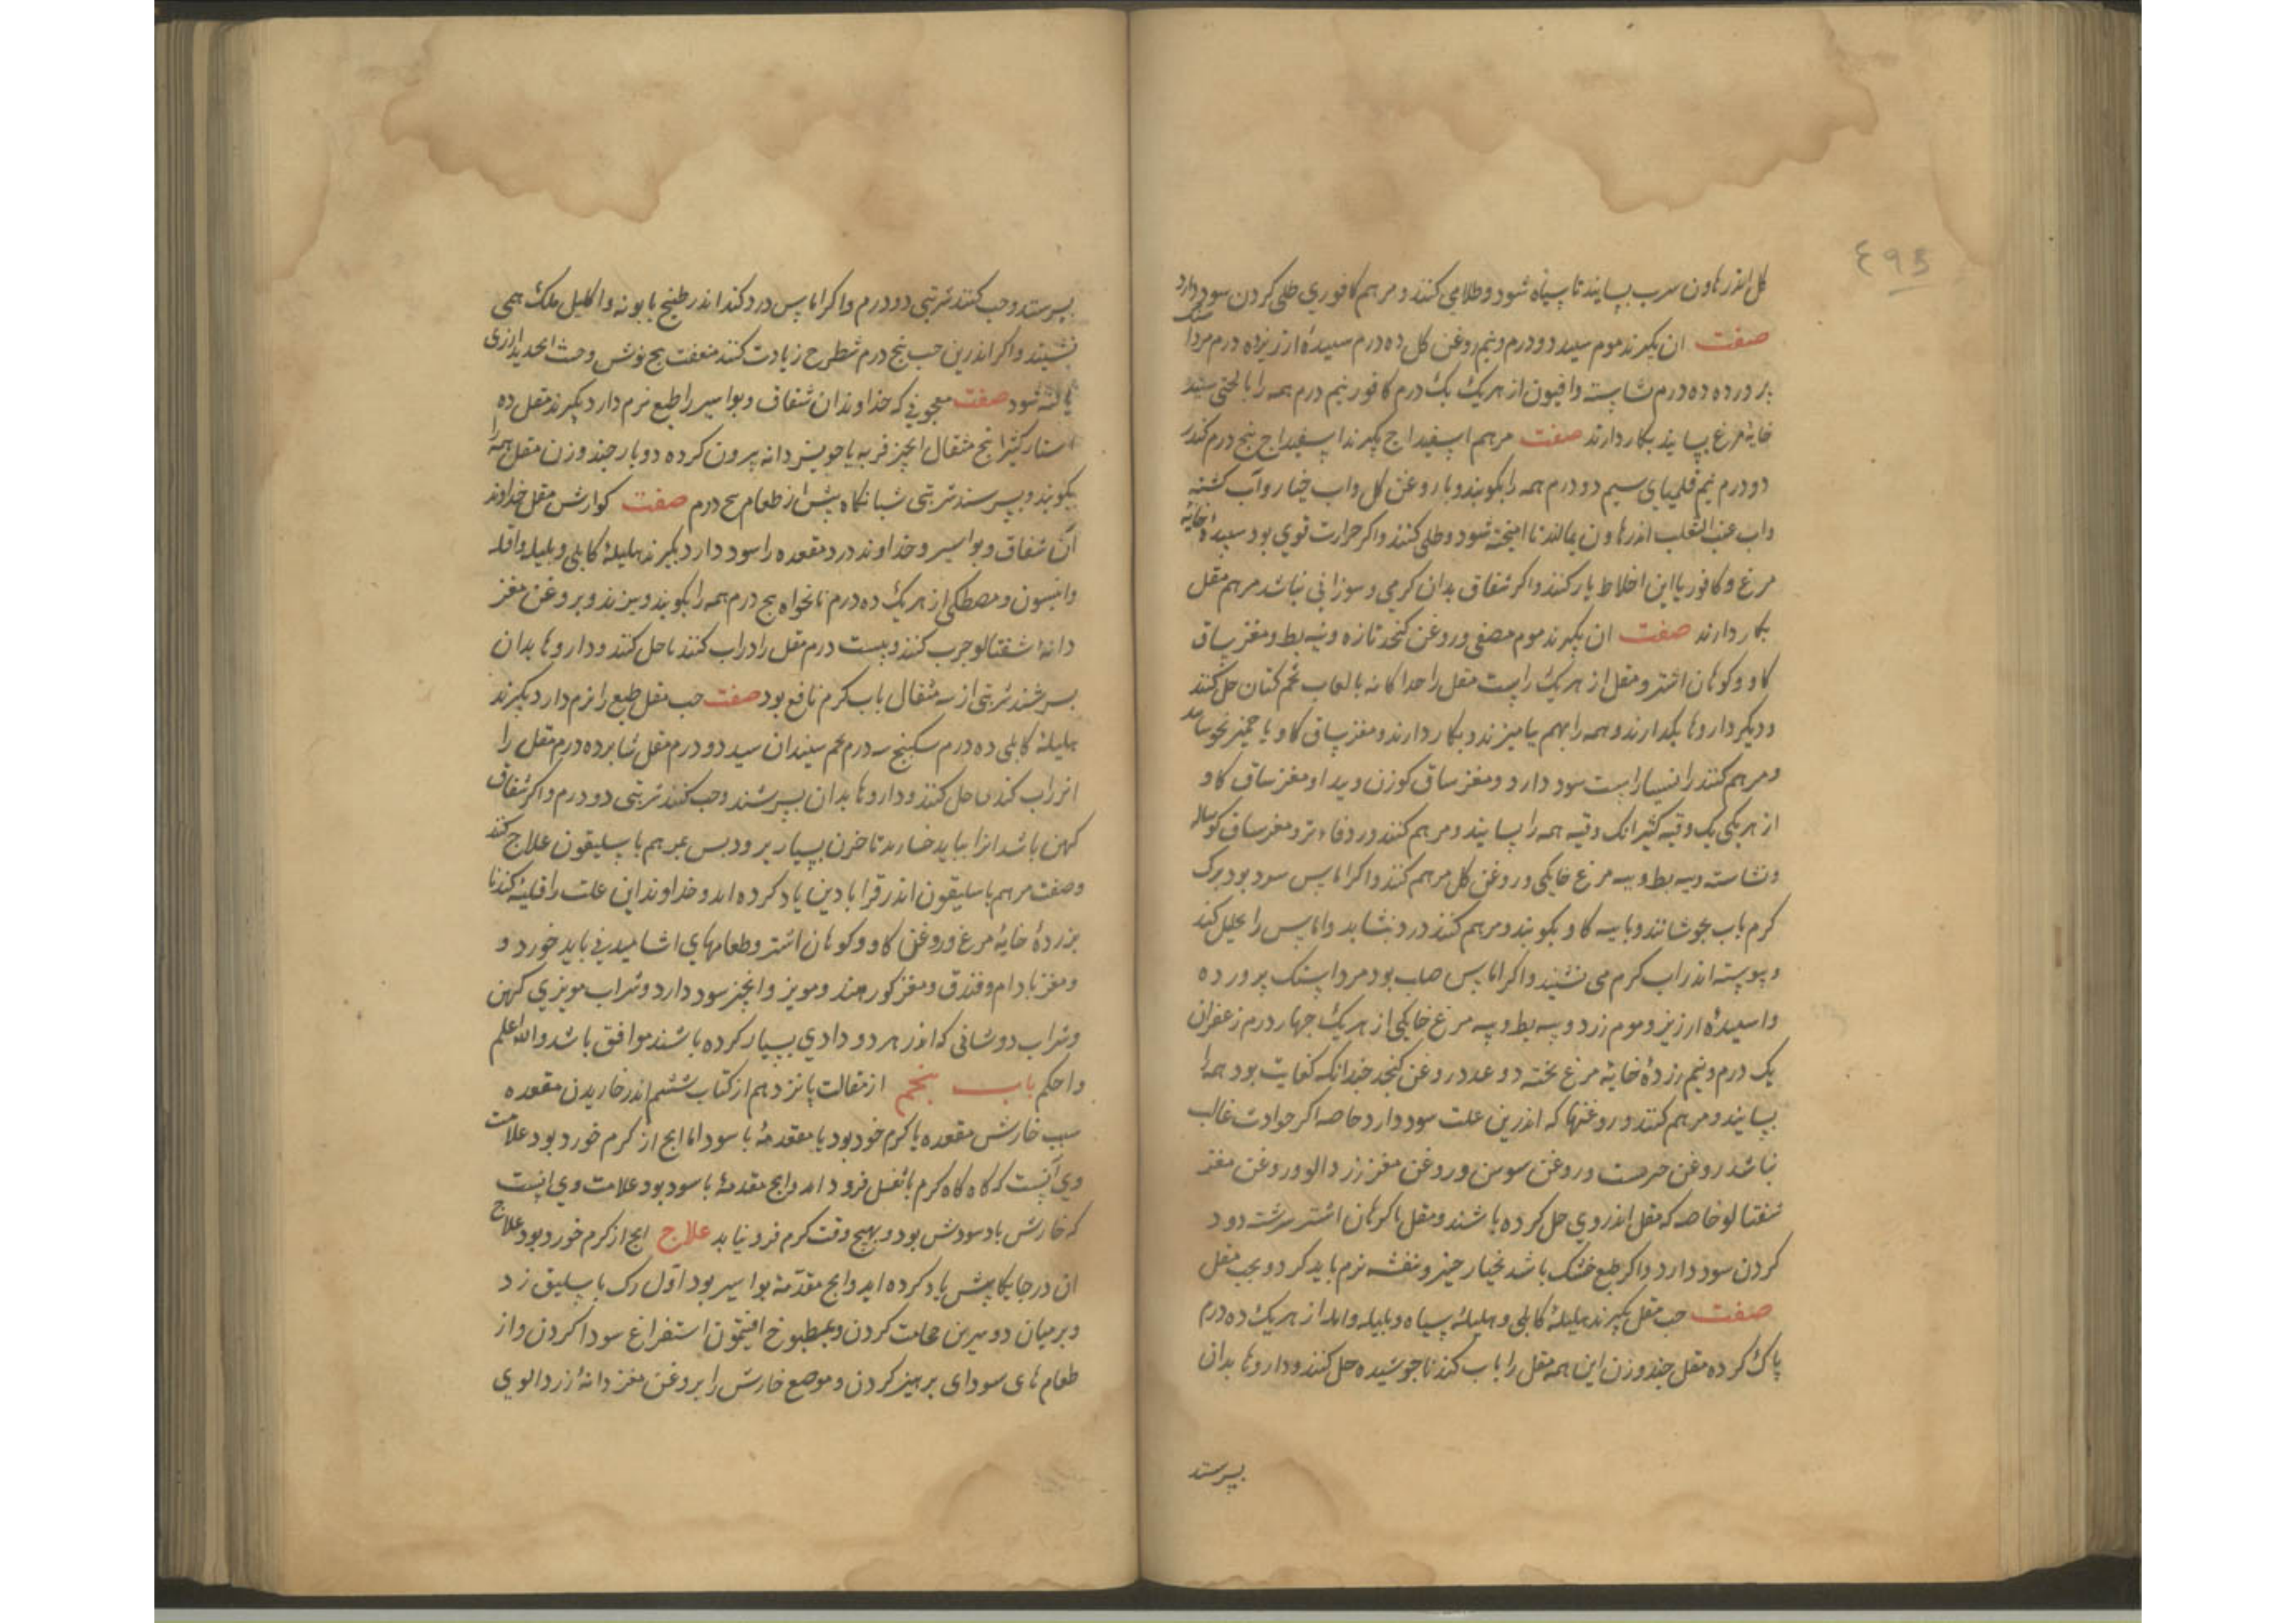 ٤٩٥
کل اندر هاون سرب بسایند تا سیاه شود و طلا می کنند و مرهم کافوری طلی کردن سود دارد
صفت ان بکیرند موم سپید دو درم و نیم روغن کل ده درم سپیدۀ ارزیز ده درم مردا سنک
پرورده ده درم نشاسته وافیون از هر یک یک درم کافور نیم درم همه را با لختی سپیده
خایۀ مرغ بسایند بکار دارند صفت مرهم اسفیداج بکیرند اسفیداج پنج درم کندر
دو درم نیم قلمیای سیم دو درم همه را بکوبند و با روغن کل واب خیار وآب کشنیز
واب عنب الثعلب اندر هاون بمالند تا امیخته شود و طلی کنند واکر حرارت قوی بود سپیدۀ خایۀ
مرغ و کافور با این اخلاط یار کنند واکر شقاق بدان کرمی و سوزانی نباشد مرهم مقل
بکار دارند صفت ان بکیرند موم مصفی و روغن کنجد تازه و پیه بط و مغز ساق
کاو و کوهان اشتر و مقل از هر یک راست مقل را جداکانه با لعاب تخم کتان حل کنند
و دیکر داروها بکدازند و همه را بهم بیامیزند و بکار دارند و مغز ساق کاو با
و مرهم کنند را سود دارد و مغز ساق کوزن و مغز ساق کاو
از هر یکی یک وقیه کثیرا نک وقیه همه را بسایند و مرهم کنند و مغز ساق کوساله
و نشاسته و پیه بط و پیه مرغ خانکی و روغن کل مرهم کنند واکر اماس بود برک
کرم باب بجوشانند و با پیه کاو بکوبند و مرهم کنند درد بنشاند واماس را تحلیل کند
و پیوسته اندر اب کرم می نشیند واکر اماس صلب بود مرداسنک پرورده
واسپیدۀ ارزیز و موم زرد و پیه بط و پیه مرغ خانکی از هر یک چهار درم زعفران
یک درم و نیم زردۀ خایۀ مرغ پخته دو عدد روغن کنجد چندانکه کفایت بود همه را
بسایند و مرهم کنند و روغنها که اندرین علت سود دارد خاصه اکر حرارت غالب
نباشد روغن و روغن سوسن و روغن مغز زردالو و روغن مغز
شفتالو خاصه که مقل اندروی حل کرده باشند و مقل با کوهان اشتر سرشته دود
کردن سود دارد واکر طبع خشک باشد بخیار چنبر و بنفشه نرم باید کرد و بحب مقل
صفت حب مقل بکیرند هلیلۀ کابلی و هلیلۀ سیاه و بلیله وامله از هر یک ده درم
پاک کرده مقل چند وزن این همه مقل را باب کندنا جوشیده حل کنند و داروها بدان
بسرشند
بسرشند و حب کنند شربتی دو درم واکر اماس درد کند اندر طبیخ بابونه واکلیل ملک همی
نشیند واکر اندرین حب پنج درم شیطرج زیادت کنند منفعت و خبث الحدید
صفت معجونی که خداوندان شقاق و بواسیر را طبع نرم دارد بکیرند مقل ده
استار کثیرا پنج مثقال انجیر فربه یا مویز دانه بیرون کرده دو بار چند وزن مقل همه را
بکوبند و بسرشند شربتی شبانکاه پیش از طعام پنج درم صفت کوارش مقل خداوند
آن شقاق و بواسیر و خداوند درد مقعده را سود دارد بکیرند هلیلۀ کابلی و بلیله
وانیسون و مصطکی از هر یک ده درم نانخواه پنج درم همه را بکوبند و ببیزند و بروغن مغز
دانۀ شفتالو چرب کنند و بیست درم مقل را در اب کندنا حل کنند و داروها بدان
بسرشند شربتی از سه مثقال باب کرم نافع بود صفت حب مقل طبع را نرم دارد بکیرند
هلیلۀ کابلی ده درم سکبینج سه درم تخم سپندان سپید دو درم مقل ده درم مقل را
اندر اب کندنا حل کنند و داروها بدان بسرشند و حب کنند شربتی دو درم واکر شقاق
کهن باشد انرا بباید خارید تا خون بسیار برود پس بمرهم باسلیقون علاج کنند
و صفت مرهم باسلیقون اندر قرابادین یاد کرده اید و خداوند این علت را قلیۀ کندنا
بزردۀ خایۀ مرغ و روغن کاو و کوهان اشتر و طعامهای باید خورد و
و مغز بادام و فندق و مغز کوز هند و مویز وانجیر سود دارد و شراب مویزی کهن
و شراب دوشابی که اندر هر دو دادی بسیار کرده باشند موافق باشد والله اعلم
واحکم باب پنجم از مقالت پانزدهم از کتاب ششم اندر خاریدن مقعده
سبب خارش مقعده یا کرم خرد بود یا مقدمۀ باسور اما انچ از کرم خورد بود علامت
وی آنست که کاه کاه کرم با ثفل فرود اید وانچ مقدمۀ باسور بود علامت وی انست
که خارش با سوزش بود و بهیچ وقت کرم فرو نیاید علاج انچ از کرم خورد بود علاج
ان در جایکاه پیش یاد کرده اید وانچ مقدّمۀ بواسیر بود اوّل رک باسلیق زد
و بر میان دو سرین حجامت کردن و بمطبوخ افتیمون استفراغ سودا کردن واز
طعام های سودای پرهیز کردن و موضع خارش را بروغن مغز دانۀ زردالوی